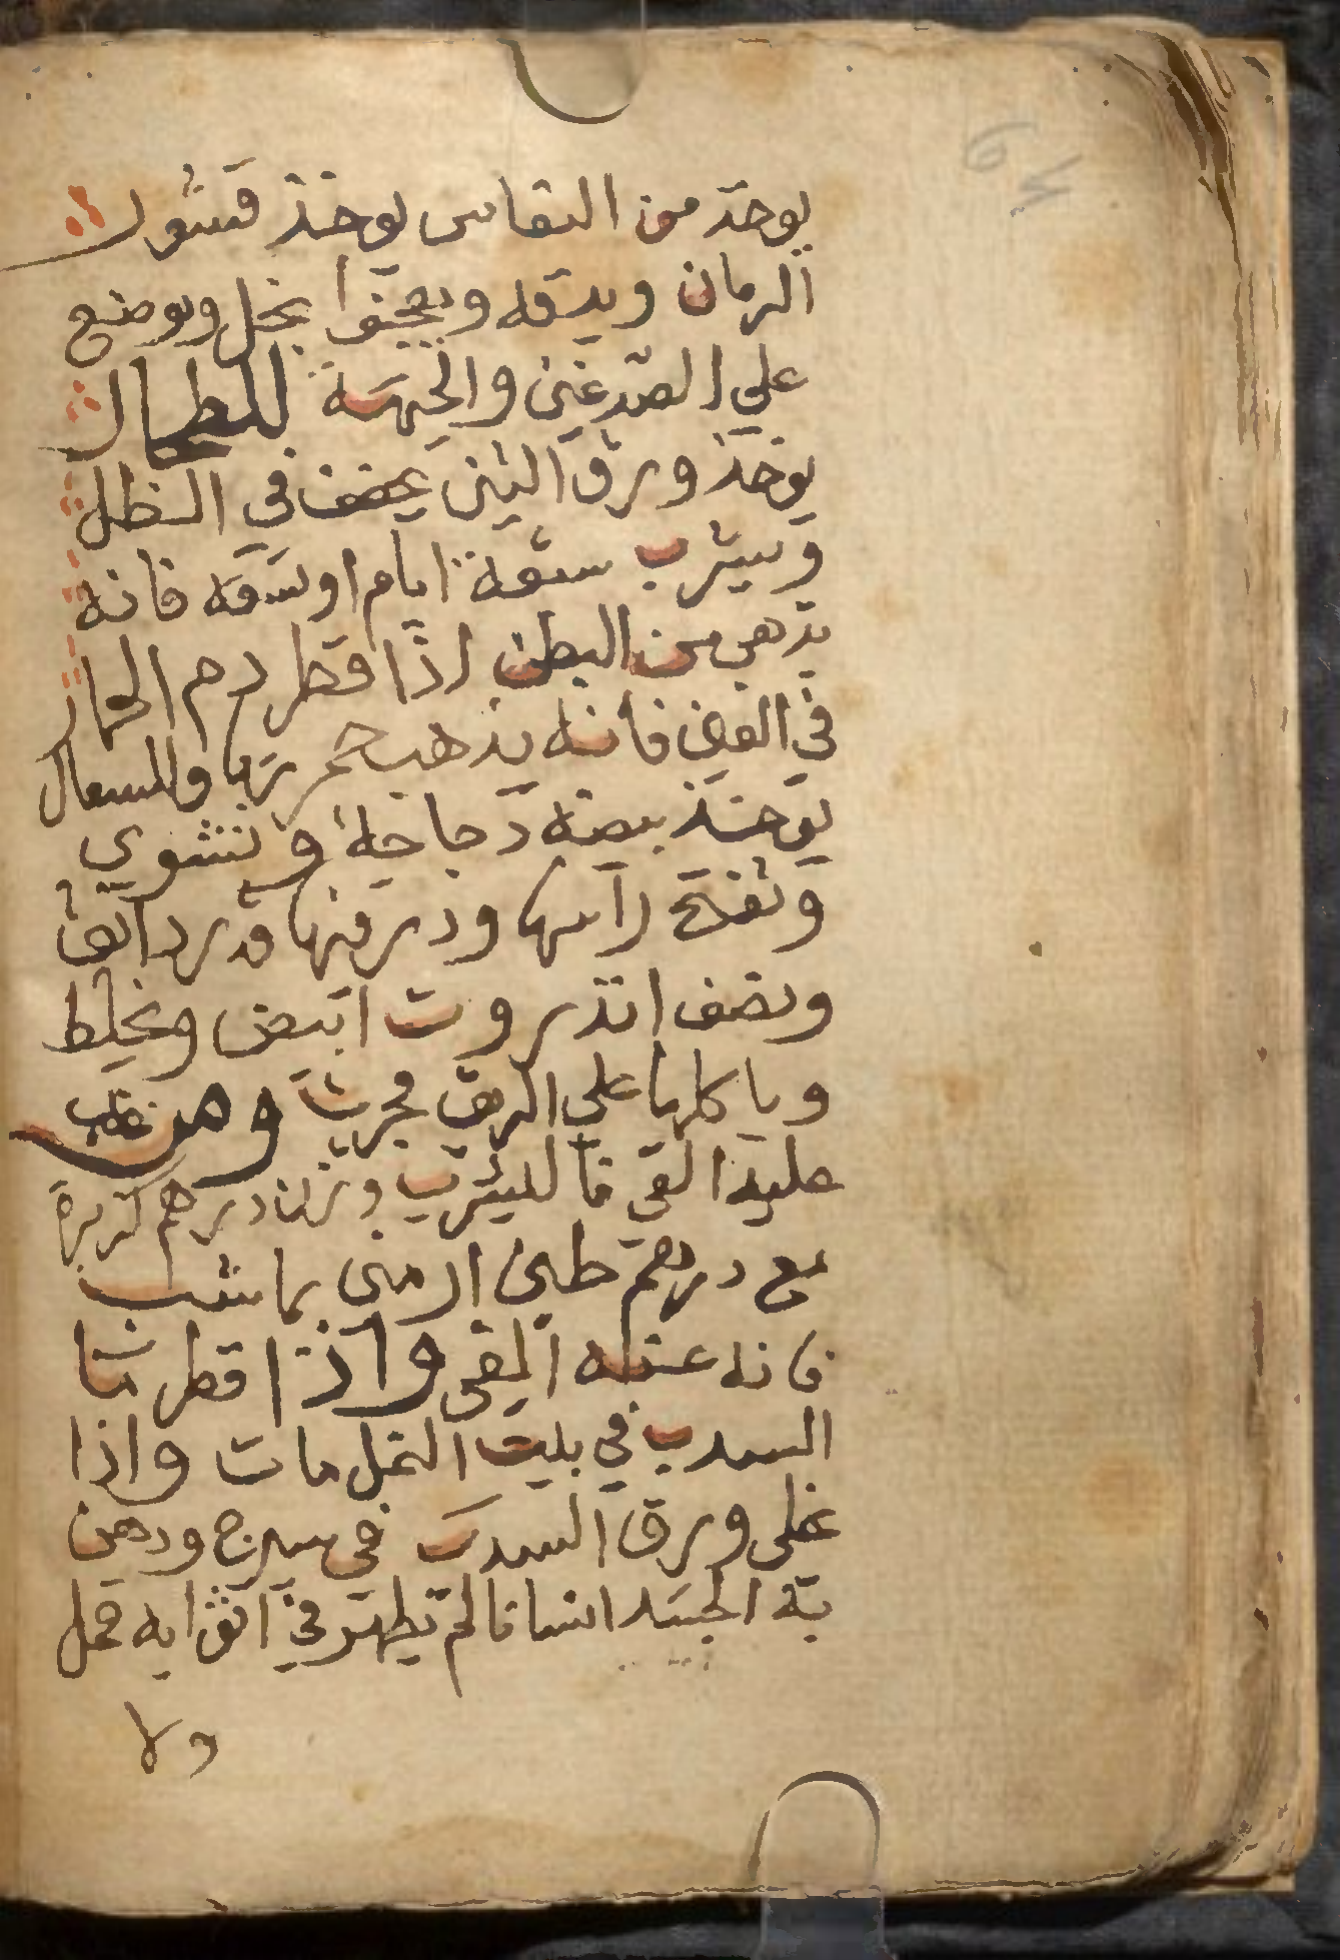 يوخذ من النقاس يوخذ قشور
الرمان ويدقه ويعجنوا بخل ويوضع
علي الصدغين والجبهة للطحال
يوخذ ورق التين يجفف في الظل
ويشرب سبعة ايام او تسعه فانه
يذهب من البطن اذا قطر دم الحمار
في العين فانه يذهب حمرتها وللسعال
يوخذ بيضه دجاجة وتشوي
وتفتح راسها وذر فيها قدر دانق
ونصف انذروت ابيض ويخلط
وياكلها علي الريق مجرب ومن غلب
عليه القي فاليشرب وزن درهم كزبرة
مع درهم طين ارمني بما شب
فانه عنه القي واذا قطر ما
السدب في بيت النمل مات واذا
غلي ورق السدب في سيرج ودهن
به الجسد انسانا لم تظهر في اثوابه قمل
ولا